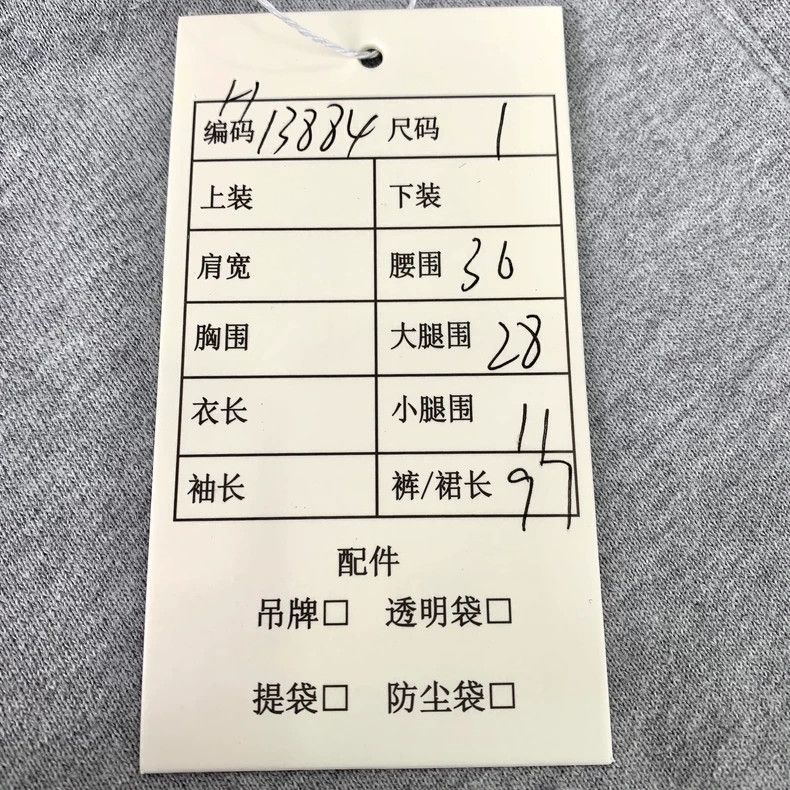 H
编码 13884 尺码 1
上装 下装
肩宽 腰围 36
胸围 大腿围 28
衣长 小腿围 11
袖长 裤/裙长 97
配件
吊牌□ 透明袋□
提袋□ 防尘袋□